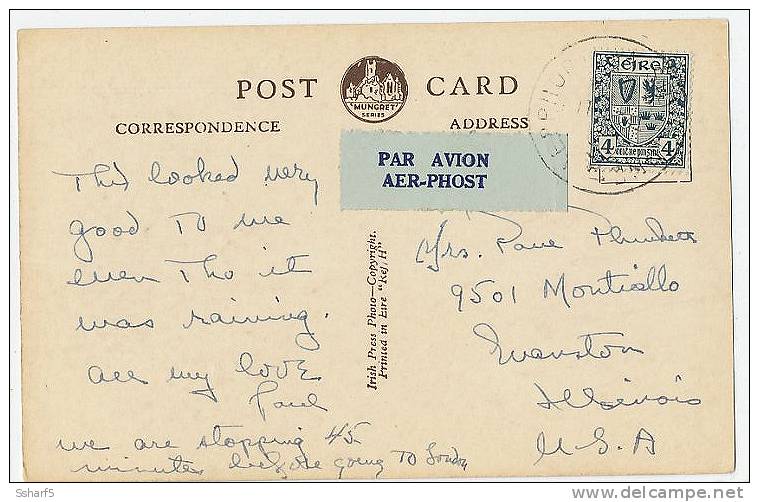 POST CARD
"MUNGRET"
SERIES
CORRESPONDENCE
ADDRESS
EIRE
4 4
PAR AVION
AER-PHOST
This looked very
good to me
even tho it
was raining.
all my love
Paul
we are stopping 45
minutes before going to London
Irish Press Photo—Copyright.
Printed in Eire "Ref. H"
Mrs. Paul Plunkett
9501 Monticello
Evanston
Illinois
U.S.A
© Scharf5
www.delcampe.net